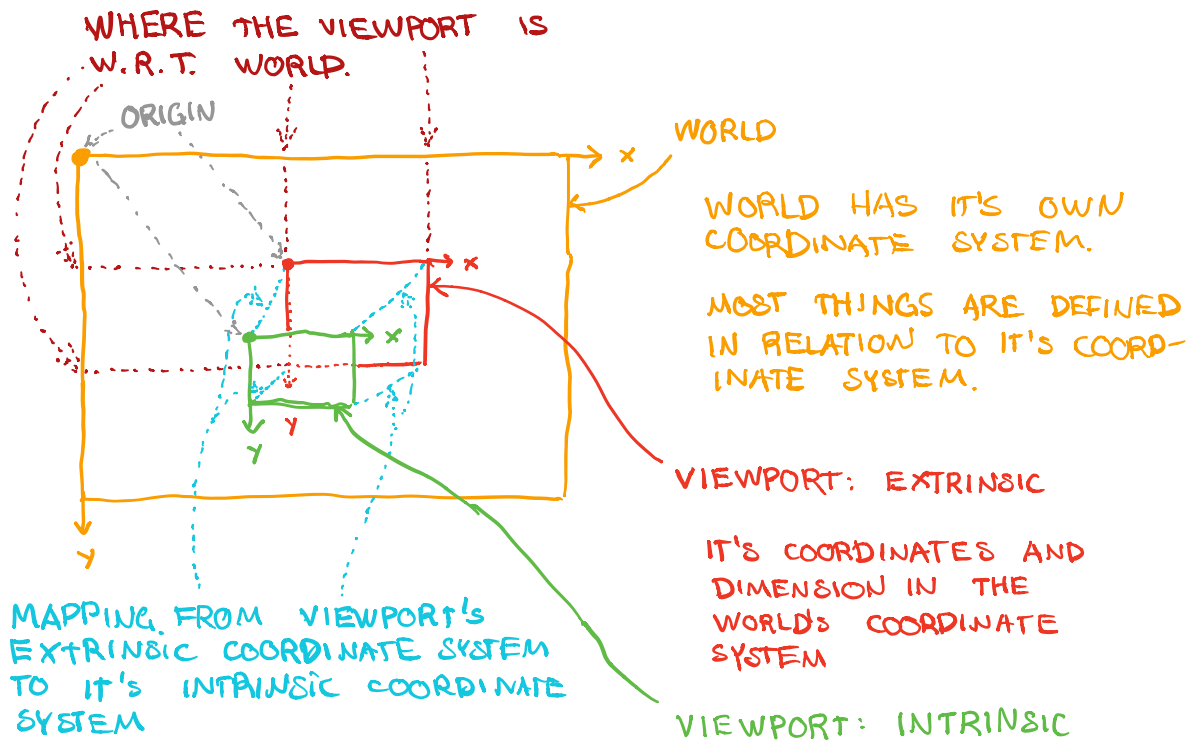 WHERE THE VIEWPORT IS
W.R.T. WORLD.
ORIGIN
X
WORLD
WORLD HAS IT'S OWN
COORDINATE SYSTEM.
X
MOST THINGS ARE DEFINED
IN RELATION TO IT'S COORD-
INATE SYSTEM.
X
Y
Y
VIEWPORT: EXTRINSIC
Y
IT'S COORDINATES AND
DIMENSION IN THE
WORLD'S COORDINATE
SYSTEM
MAPPING FROM VIEWPORT'S
EXTRINSIC COORDINATE SYSTEM
TO IT'S INTRINSIC COORDINATE
SYSTEM
VIEWPORT: INTRINSIC